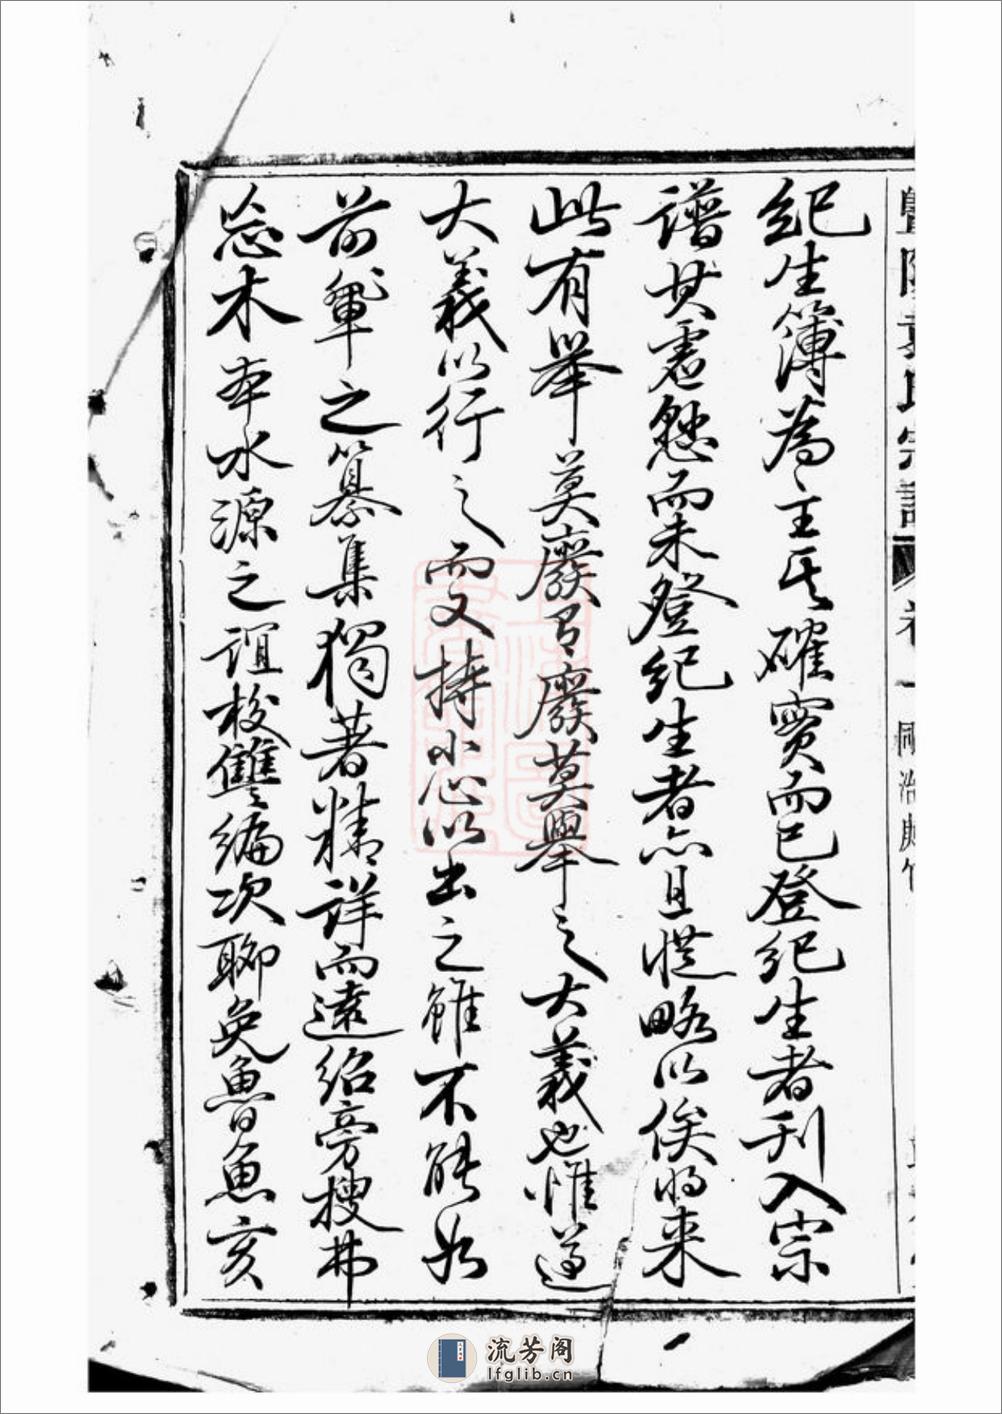 暨陽袁氏宗譜 卷一
紀生簿為主其確實而已登紀生者刊入宗
譜其虛懸而未登紀生者亦且從略以俟將來
此有舉莫廢有廢莫舉之大義也惟遵
大義以行之而又持小心以出之雖不能如
前輩之纂集獨著精詳而遠紹旁搜弗
忘木本水源之誼校讎編次聊免魯魚亥
流芳阁
lfglib.cn